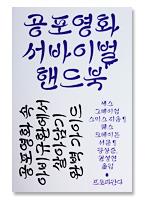 공포영화
서바이벌
핸드북
공포영화 속
아비규환에서
살아남기
완벽 가이드
세스
그레이엄
스미스 지음
웨스
크레이븐
서문
강상준
권성영
옮김
프로파간다